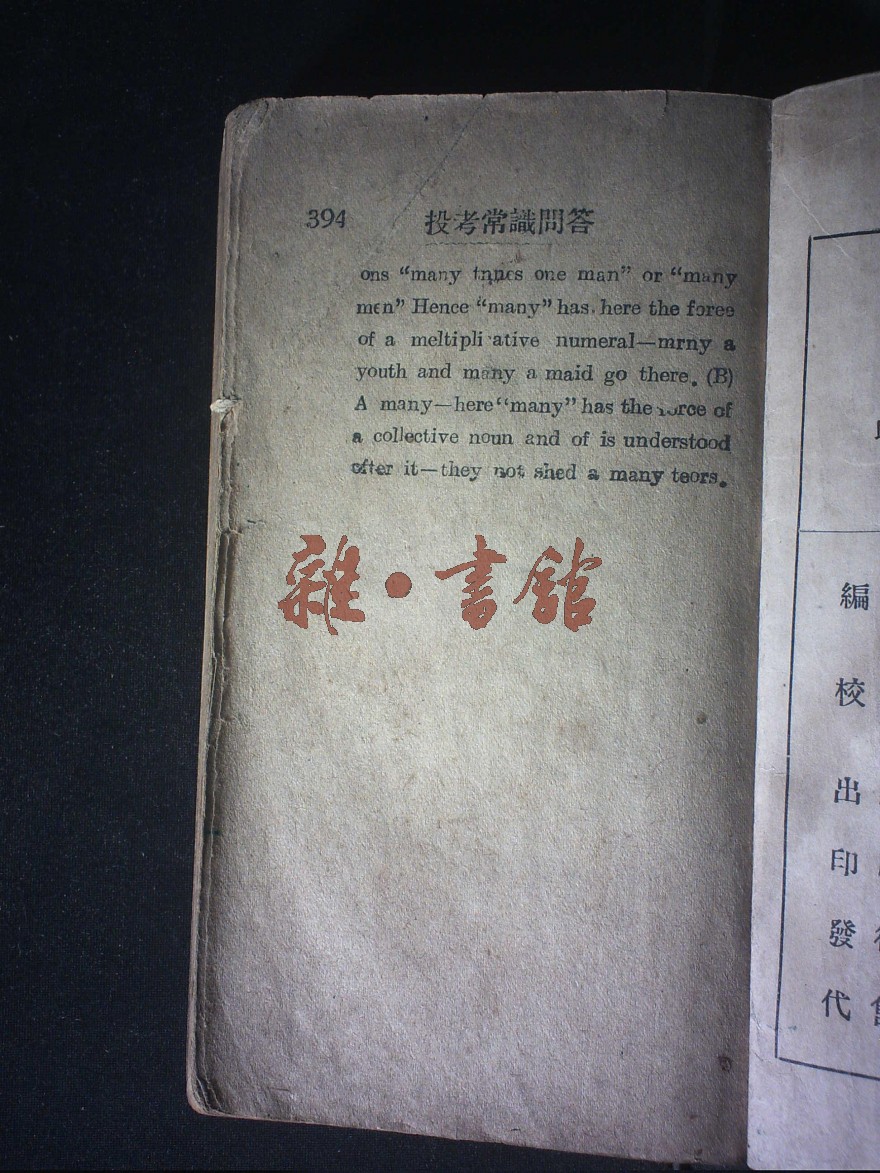 394 投考常識問答
ons “many tnnes one man” or “many
men” Hence “many” has here the foree
of a meltipli ative numeral—mrny a
youth and many a maid go there. (B)
A many—here “many” has the force of
a collective noun and of is understood
ofter it—they not shed a many teors.
雜·書館
編
校
出
印
發
代